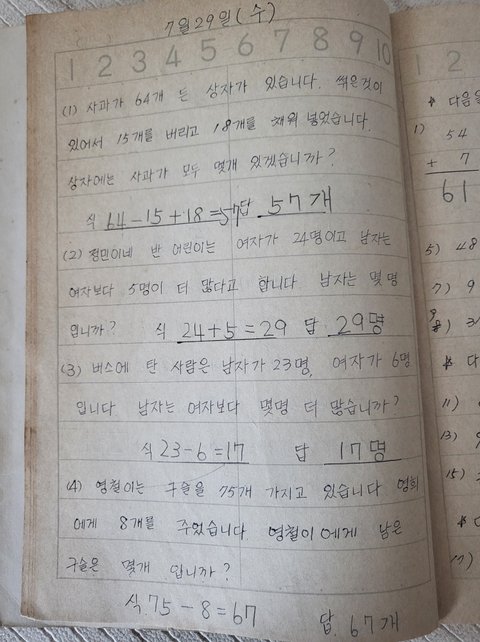 7월 29일 (수)
1 2 3 4 5 6 7 8 9 10
(1) 사과가 64개 든 상자가 있습니다. 썩은것이
있어서 15개를 버리고 18개를 채워 넣었습니다.
상자에는 사과가 모두 몇개 있겠습니까?
식 64-15+18=57 답 57개
(2) 정민이네 반 어린이는 여자가 24명이고 남자는
여자보다 5명이 더 많다고 합니다 남자는 몇명
입니까? 식 24+5=29 답 29명
(3) 버스에 탄 사람은 남자가 23명, 여자가 6명
입니다. 남자는 여자보다 몇명 더 많습니까?
식 23-6=17 답 17명
(4) 영철이는 구슬을 75개 가지고 있습니다 영희
에게 8개를 주었습니다 영철이에게 남은
구슬은 몇개 입니까?
식 75-8=67 답 67개
1 2
다음을
1) 54
+ 7
61
5) 48
7) 9
다
11)
13)
15)
17)